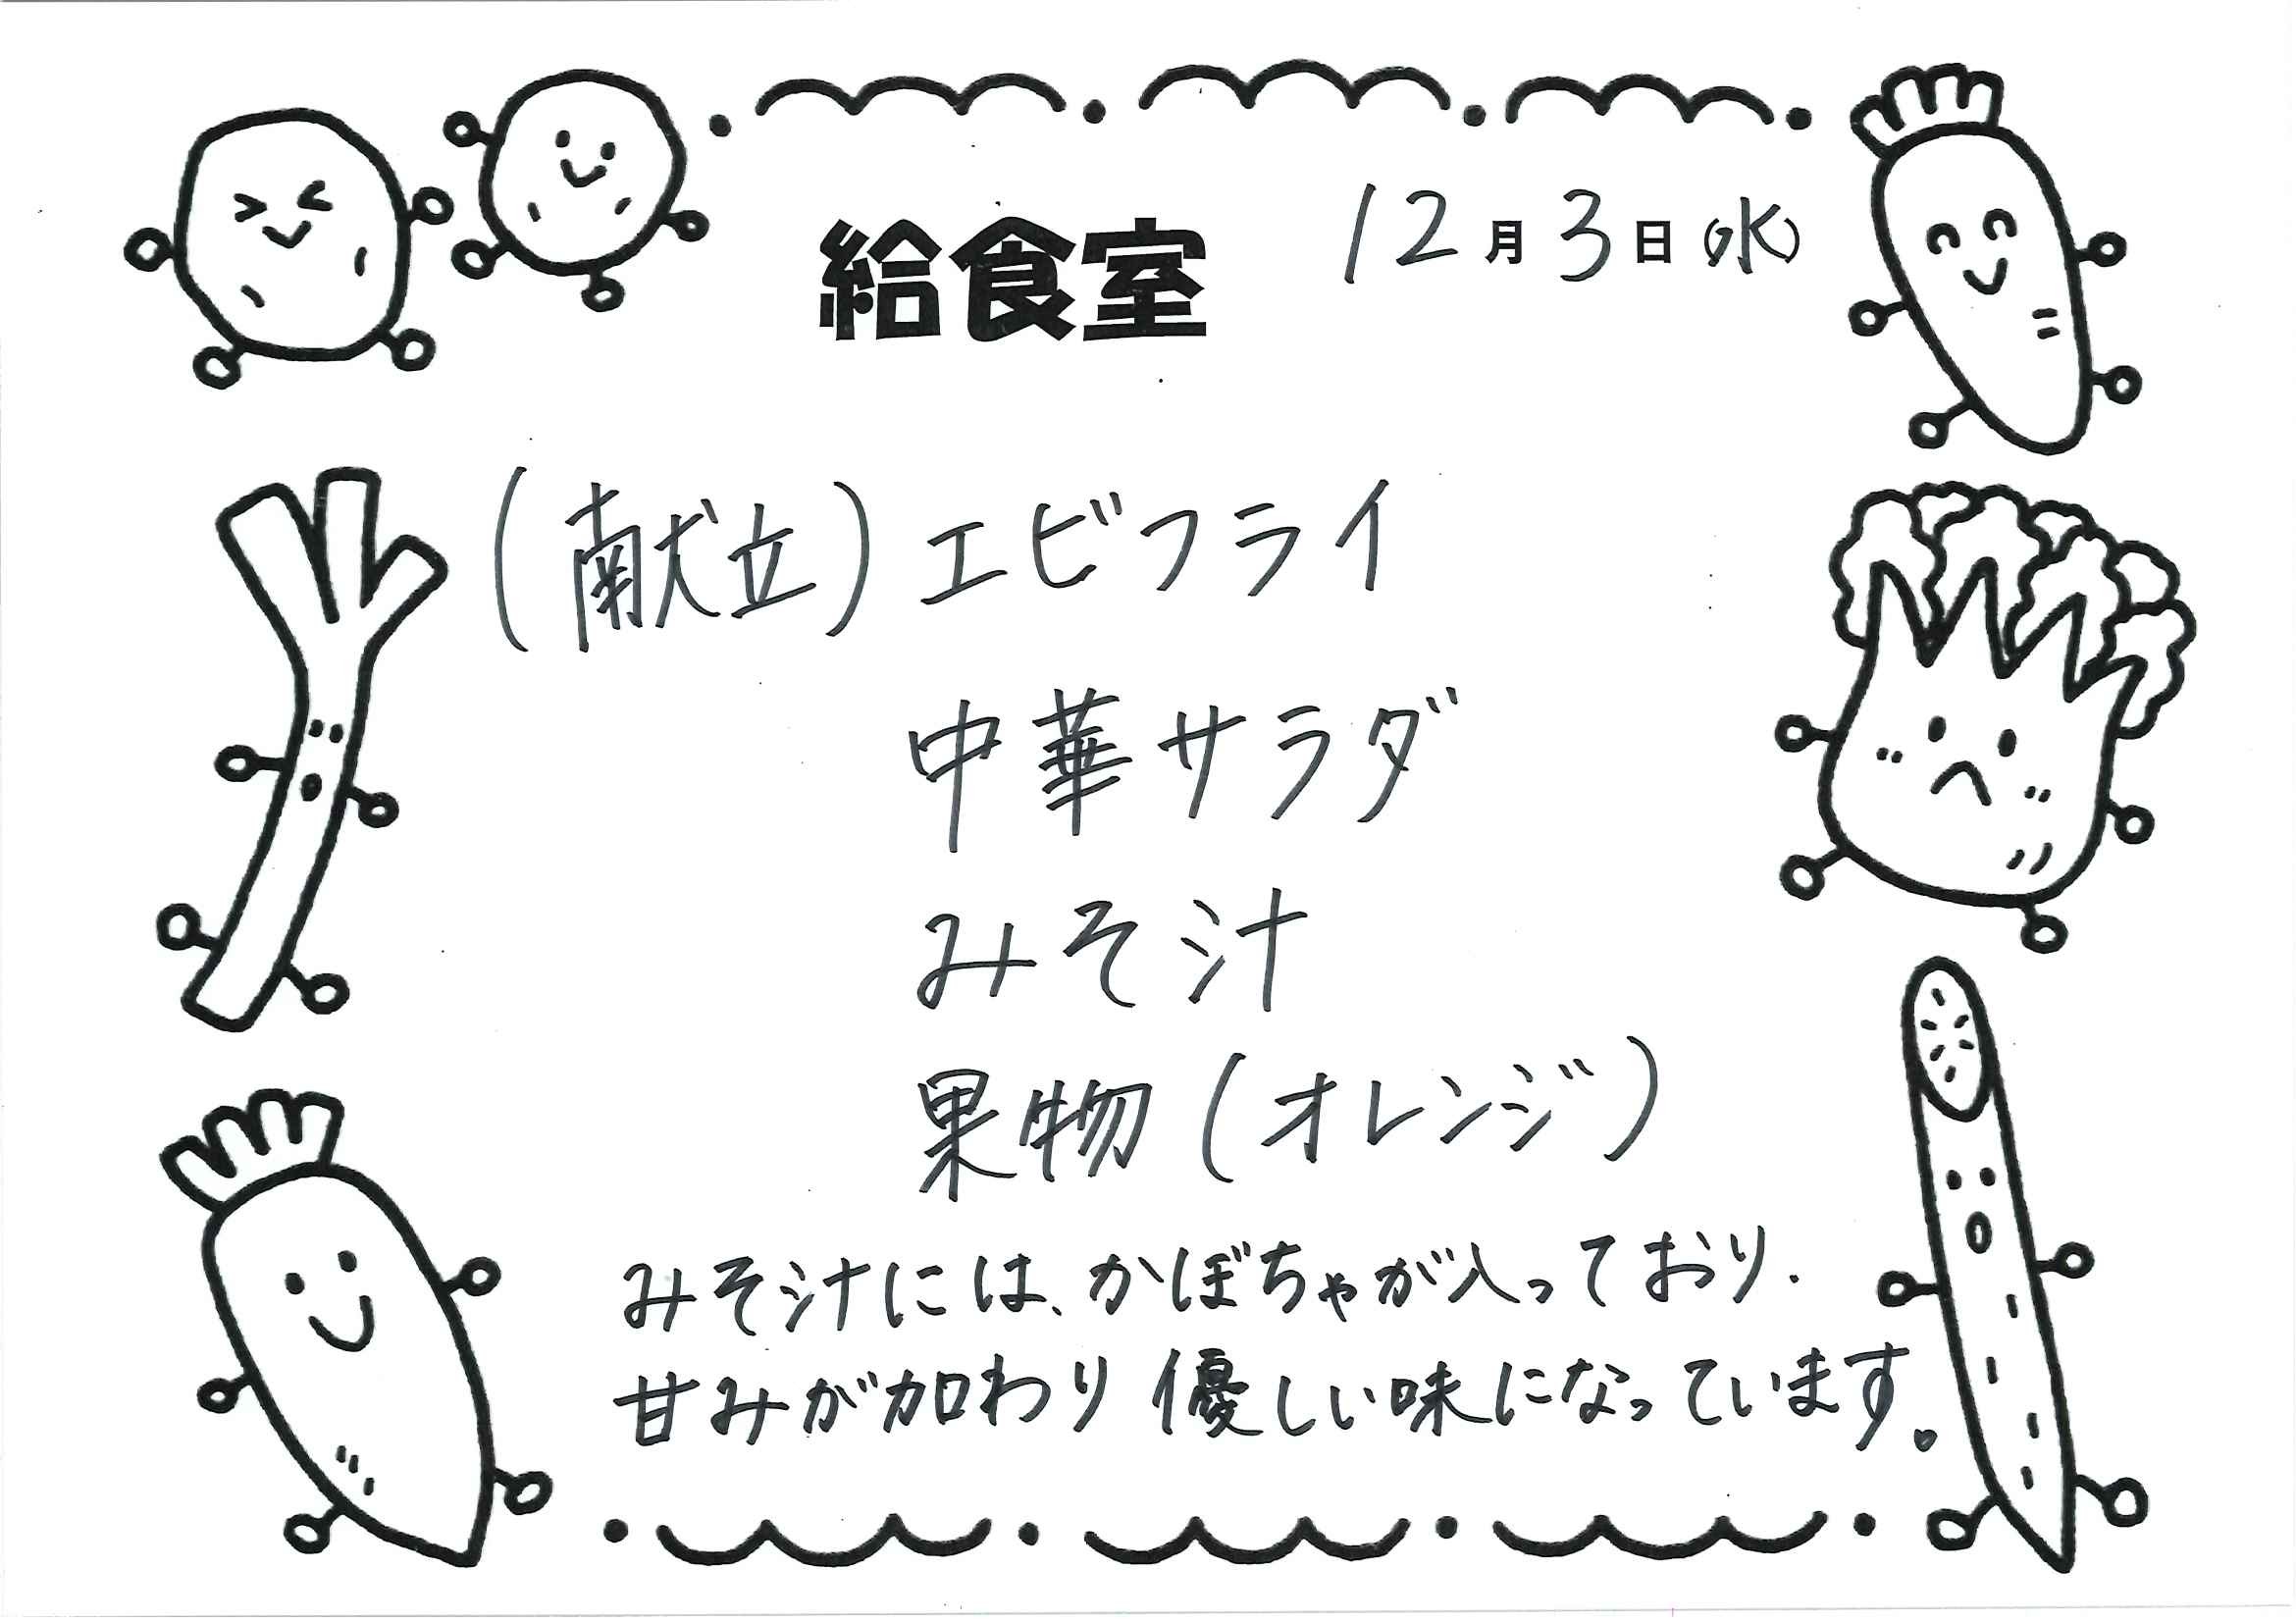 給食室 12月3日(水)
(献立)エビフライ
中華サラダ
みそ汁
果物(オレンジ)
みそ汁には、かぼちゃが入っており、
甘みが加わり優しい味になっています。